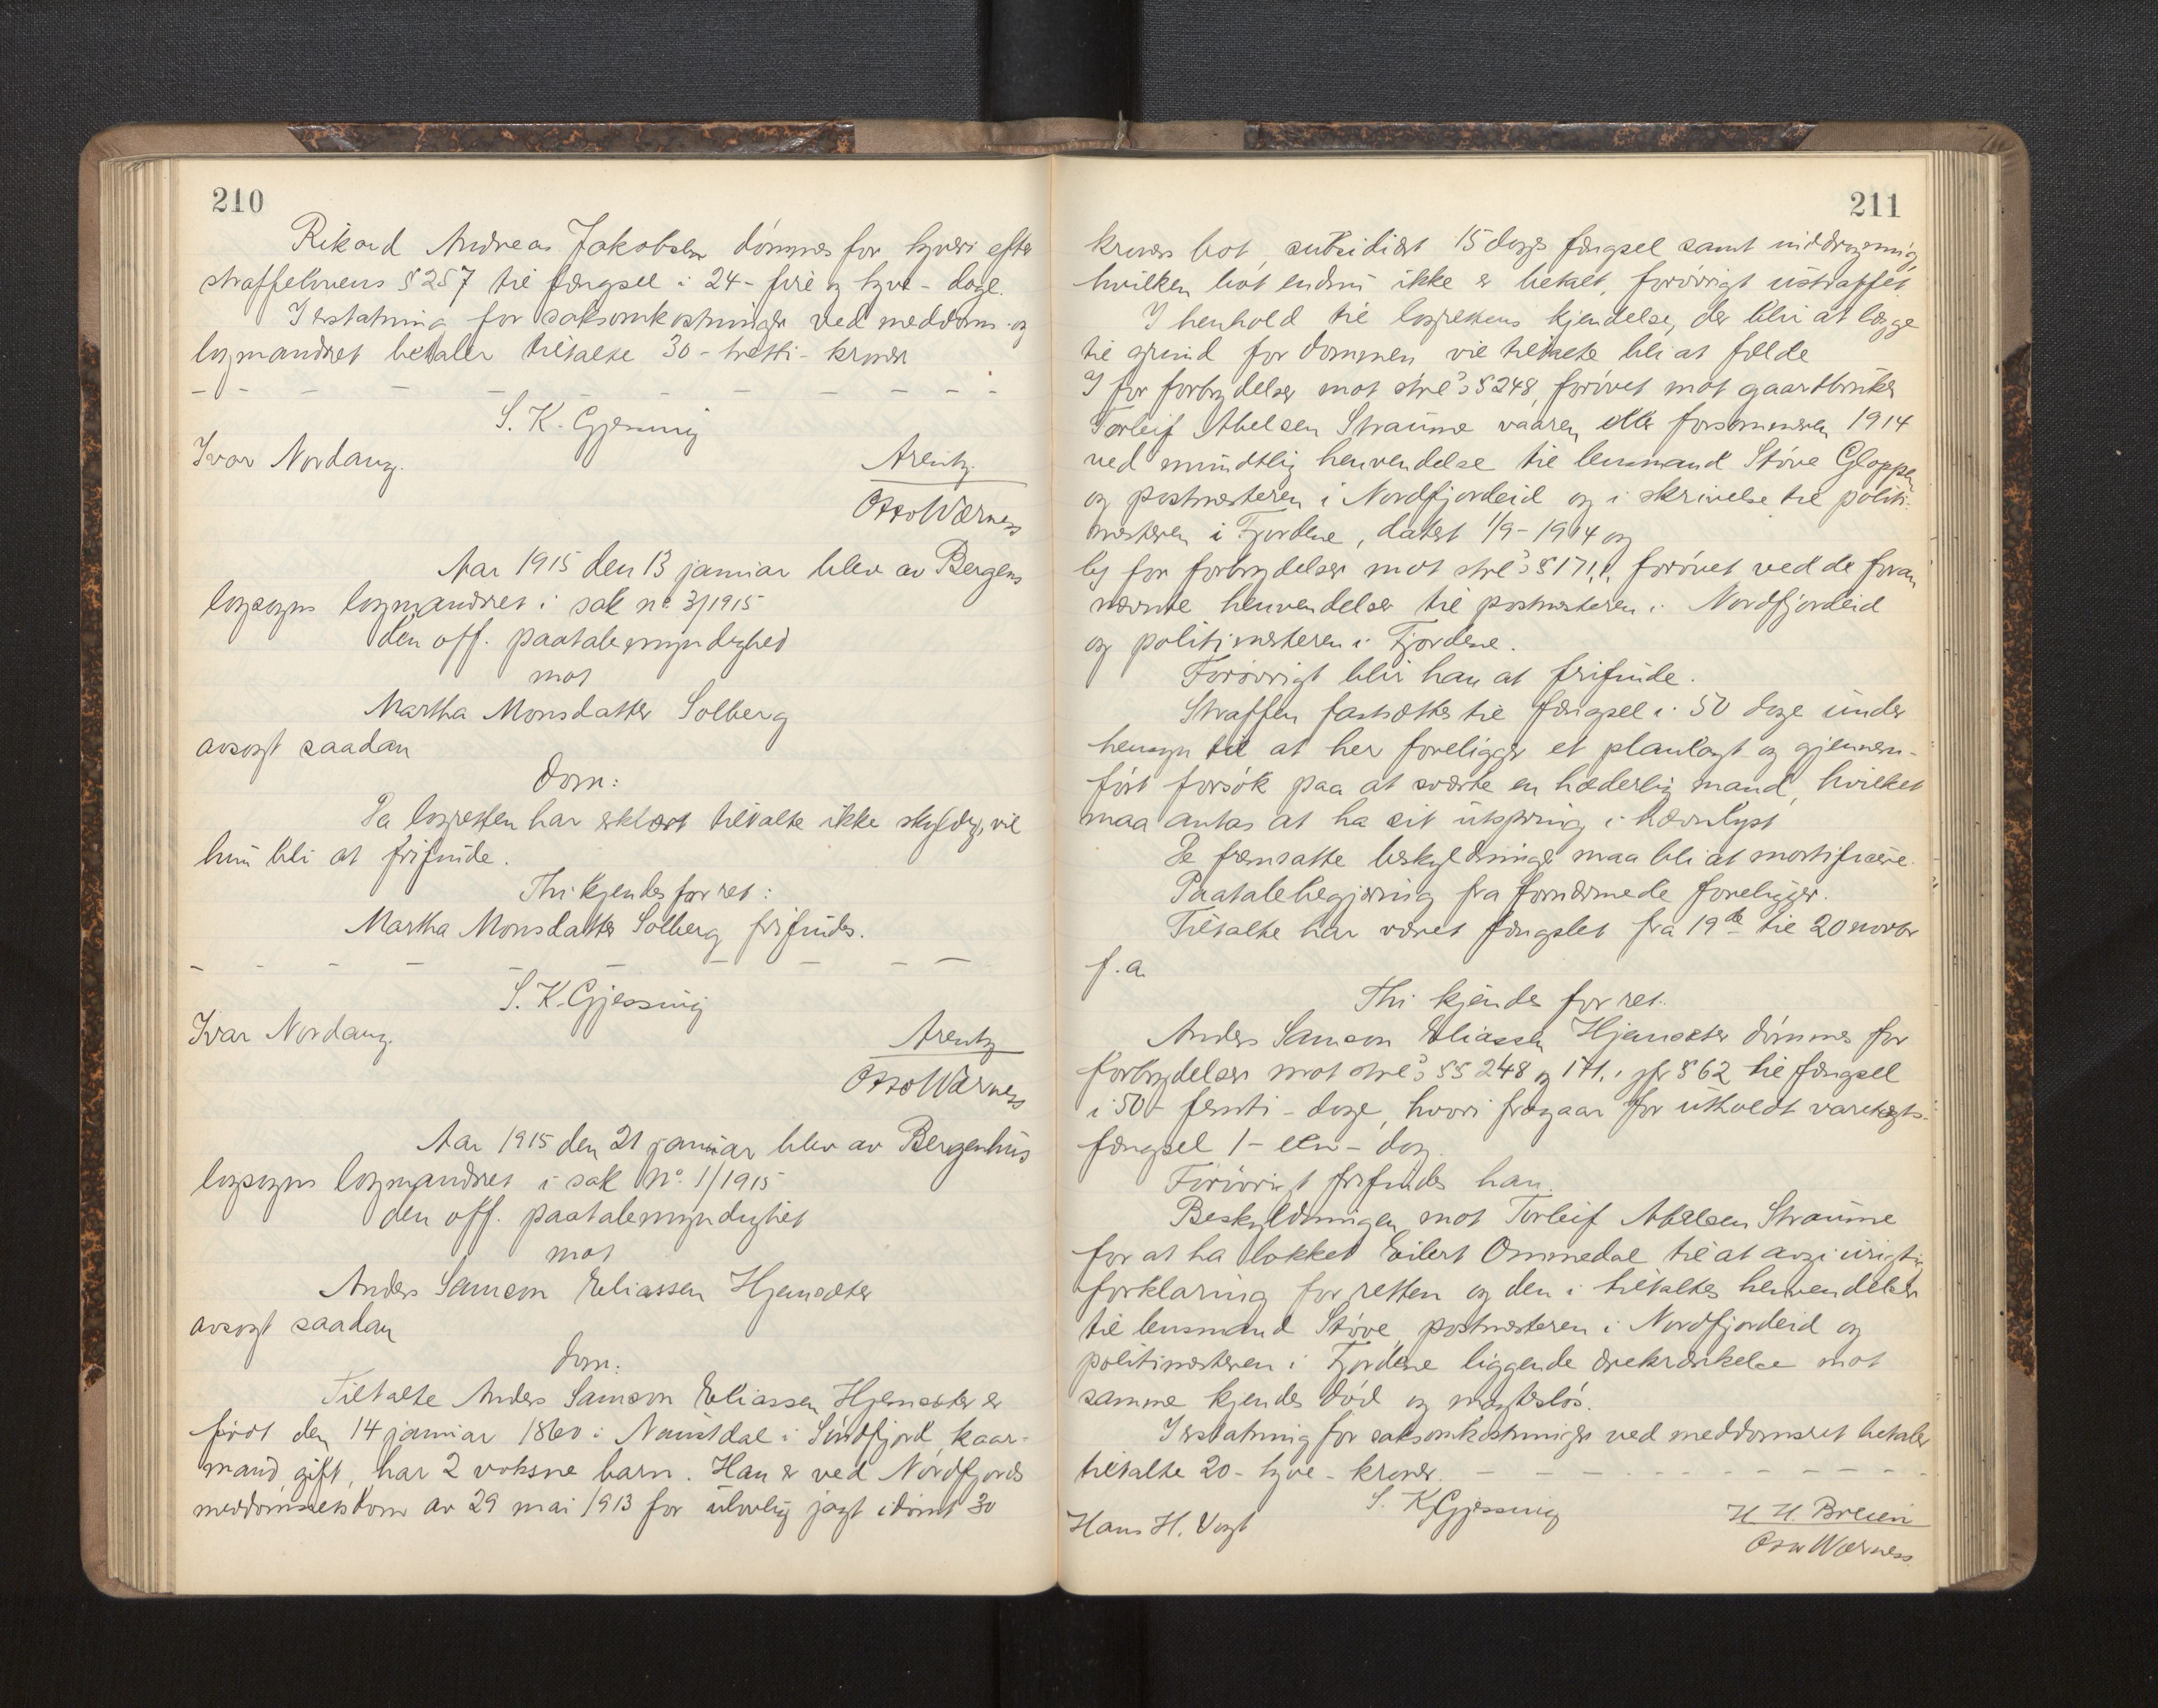 210
Rikard Andreas Jakobsen dømmes for tyveri efter
straffelovens § 257 til fængsel i 24 - fire og tyve - dage.
I erstatning for saksomkostninger ved meddoms- og
lagmandsret betaler tiltalte 30 - tretti - kroner
S. K. Gjessing
Ivar Nordang.
Arentz.
Otto Wærness
Aar 1915 den 13 januar blev av Bergens
lagsogns lagmandsret i sak no. 3/1915
den off. paatalemyndighed
mot
Martha Monsdatter Solberg
avsagt saadan
Dom:
Da lagretten har erklært tiltalte ikke skyldig, vil
hun bli at frifinde.
Thi kjendes for ret:
Martha Monsdatter Solberg frifindes.
S. K. Gjessing
Ivar Nordang.
Arentz
Otto Wærness
Aar 1915 den 21 januar blev av Bergenhus
lagsogns lagmandsret i sak No. 1/1915
den off. paatalemyndighet
mot
Anders Samson Eliassen Hjemsæter
avsagt saadan
Dom:
Tiltalte Anders Samson Eliassen Hjemsæter er
født den 14 januar 1860 i Naustdal i Søndfjord, kaar-
mand, gift, har 2 voksne barn. Han er ved Nordfjords
meddomsretsdom av 29 mai 1913 for ulovlig jagt idømt 30
211
kroners bot, subsidiært 15 dages fængsel samt inddragning,
hvilken bot endnu ikke er betalt, forøvrigt ustraffet.
I henhold til lagrettens kjendelse, der blir at lægge
til grund for dommen vil tiltalte bli at fælde
I for forbrydelser mot strl's § 248, forøvet mot gaardbruker
Torleif Abelsen Straume vaaren eller forsommeren 1914
ved mundtlig henvendelse til lensmand Støve Gloppen
og postmesteren i Nordfjordeid og i skrivelse til politi-
mesteren i Fjordene, datert 1/9-1914 og
b) for forbrydelser mot strl's § 171,1, forøvet ved de foran
nævnte henvendelser til postmesteren i Nordfjordeid
og politimesteren i Fjordene.
Forøvrigt blir han at frifinde.
Straffen fastsættes til fængsel i 50 dage under
hensyn til at her foreligger et planlagt og gjennem-
ført forsøk paa at sværte en hæderlig mand, hvilket
maa antas at ha sit utspring i hævnlyst
De fremsatte beskyldninger maa bli at mortificere.
Paatalebegjæring fra fornærmede foreligger.
Tiltalte har været fængslet fra 19de til 20 novbr
f. a.
Thi kjendes for ret:
Anders Samson Eliassen Hjemsæter dømmes for
forbrydelser mot strl's §§ 248 og 171,1 jfr § 62 til fængsel
i 50 - femti - dage, hvori fragaar for utholdt varetægts-
fængsel 1 - een - dag.
Forøvrigt frifindes han.
Beskyldningen mot Torleif Abelsen Straume
for at ha lokket Eilert Ommedal til at avgi urigtig
forklaring for retten og den i tiltaltes henvendelser
til lensmand Støve, postmesteren i Nordfjordeid og
politimesteren i Fjordene liggende ærekrænkelse mot
samme kjendes død og magtesløs.
I erstatning for saksomkostninger ved meddomsret betaler
tiltalte 20 - tyve - kroner.
S. K. Gjessing
Hans H. Vogt
H. H. Breien
Otto Wærness.